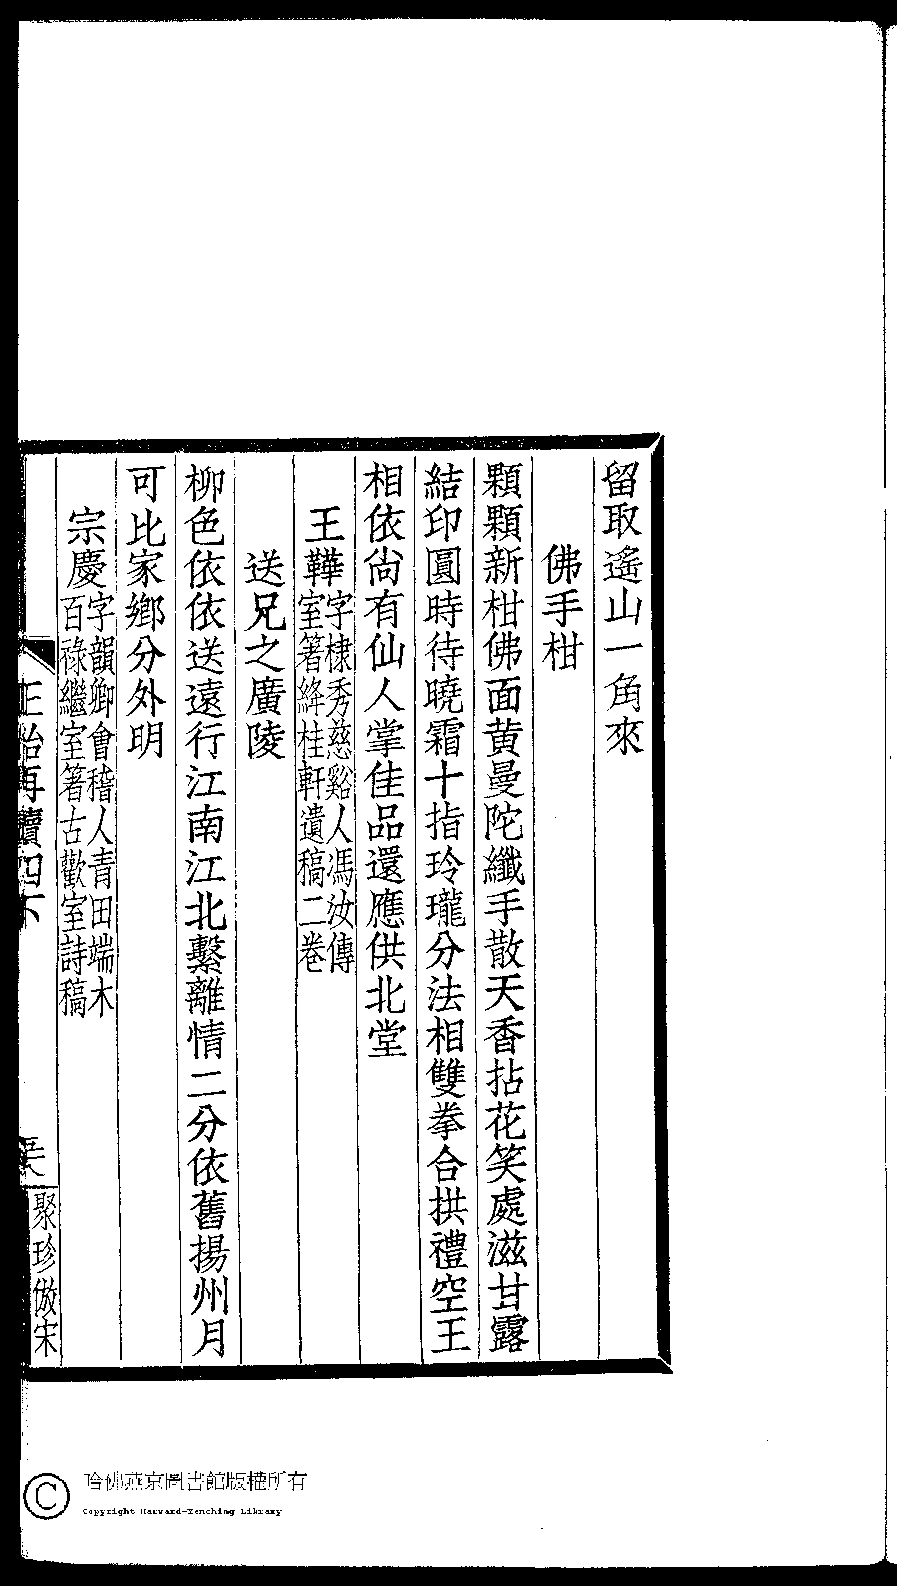 留取遙山一角來
佛手柑
顆顆新柑佛面黃曼陀纖手散天香拈花笑處滋甘露
結印圓時待曉霜十指玲瓏分法相雙拳合拱禮空王
相依尙有仙人掌佳品還應供北堂
王鞾字棣秀慈谿人馮汝傳
室箸絳桂軒遺稿二卷
送兄之廣陵
柳色依依送遠行江南江北繫離情二分依舊揚州月
可比家鄉分外明
宗慶字韻卿會稽人青田端木
百祿繼室箸古歡室詩稿
正始再續四下
聚珍倣宋
哈佛燕京圖書館版權所有
Copyright Harvard-Yenching Library